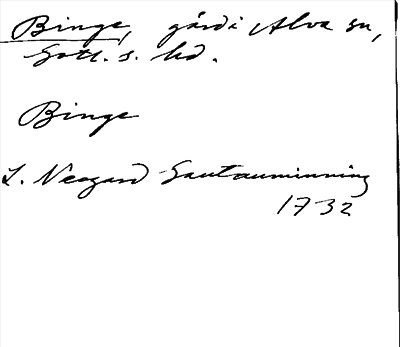 Binge, gård i Alva sn,
Gotl. s. hd.
Binge
L. Neogard Gautauminning
1732